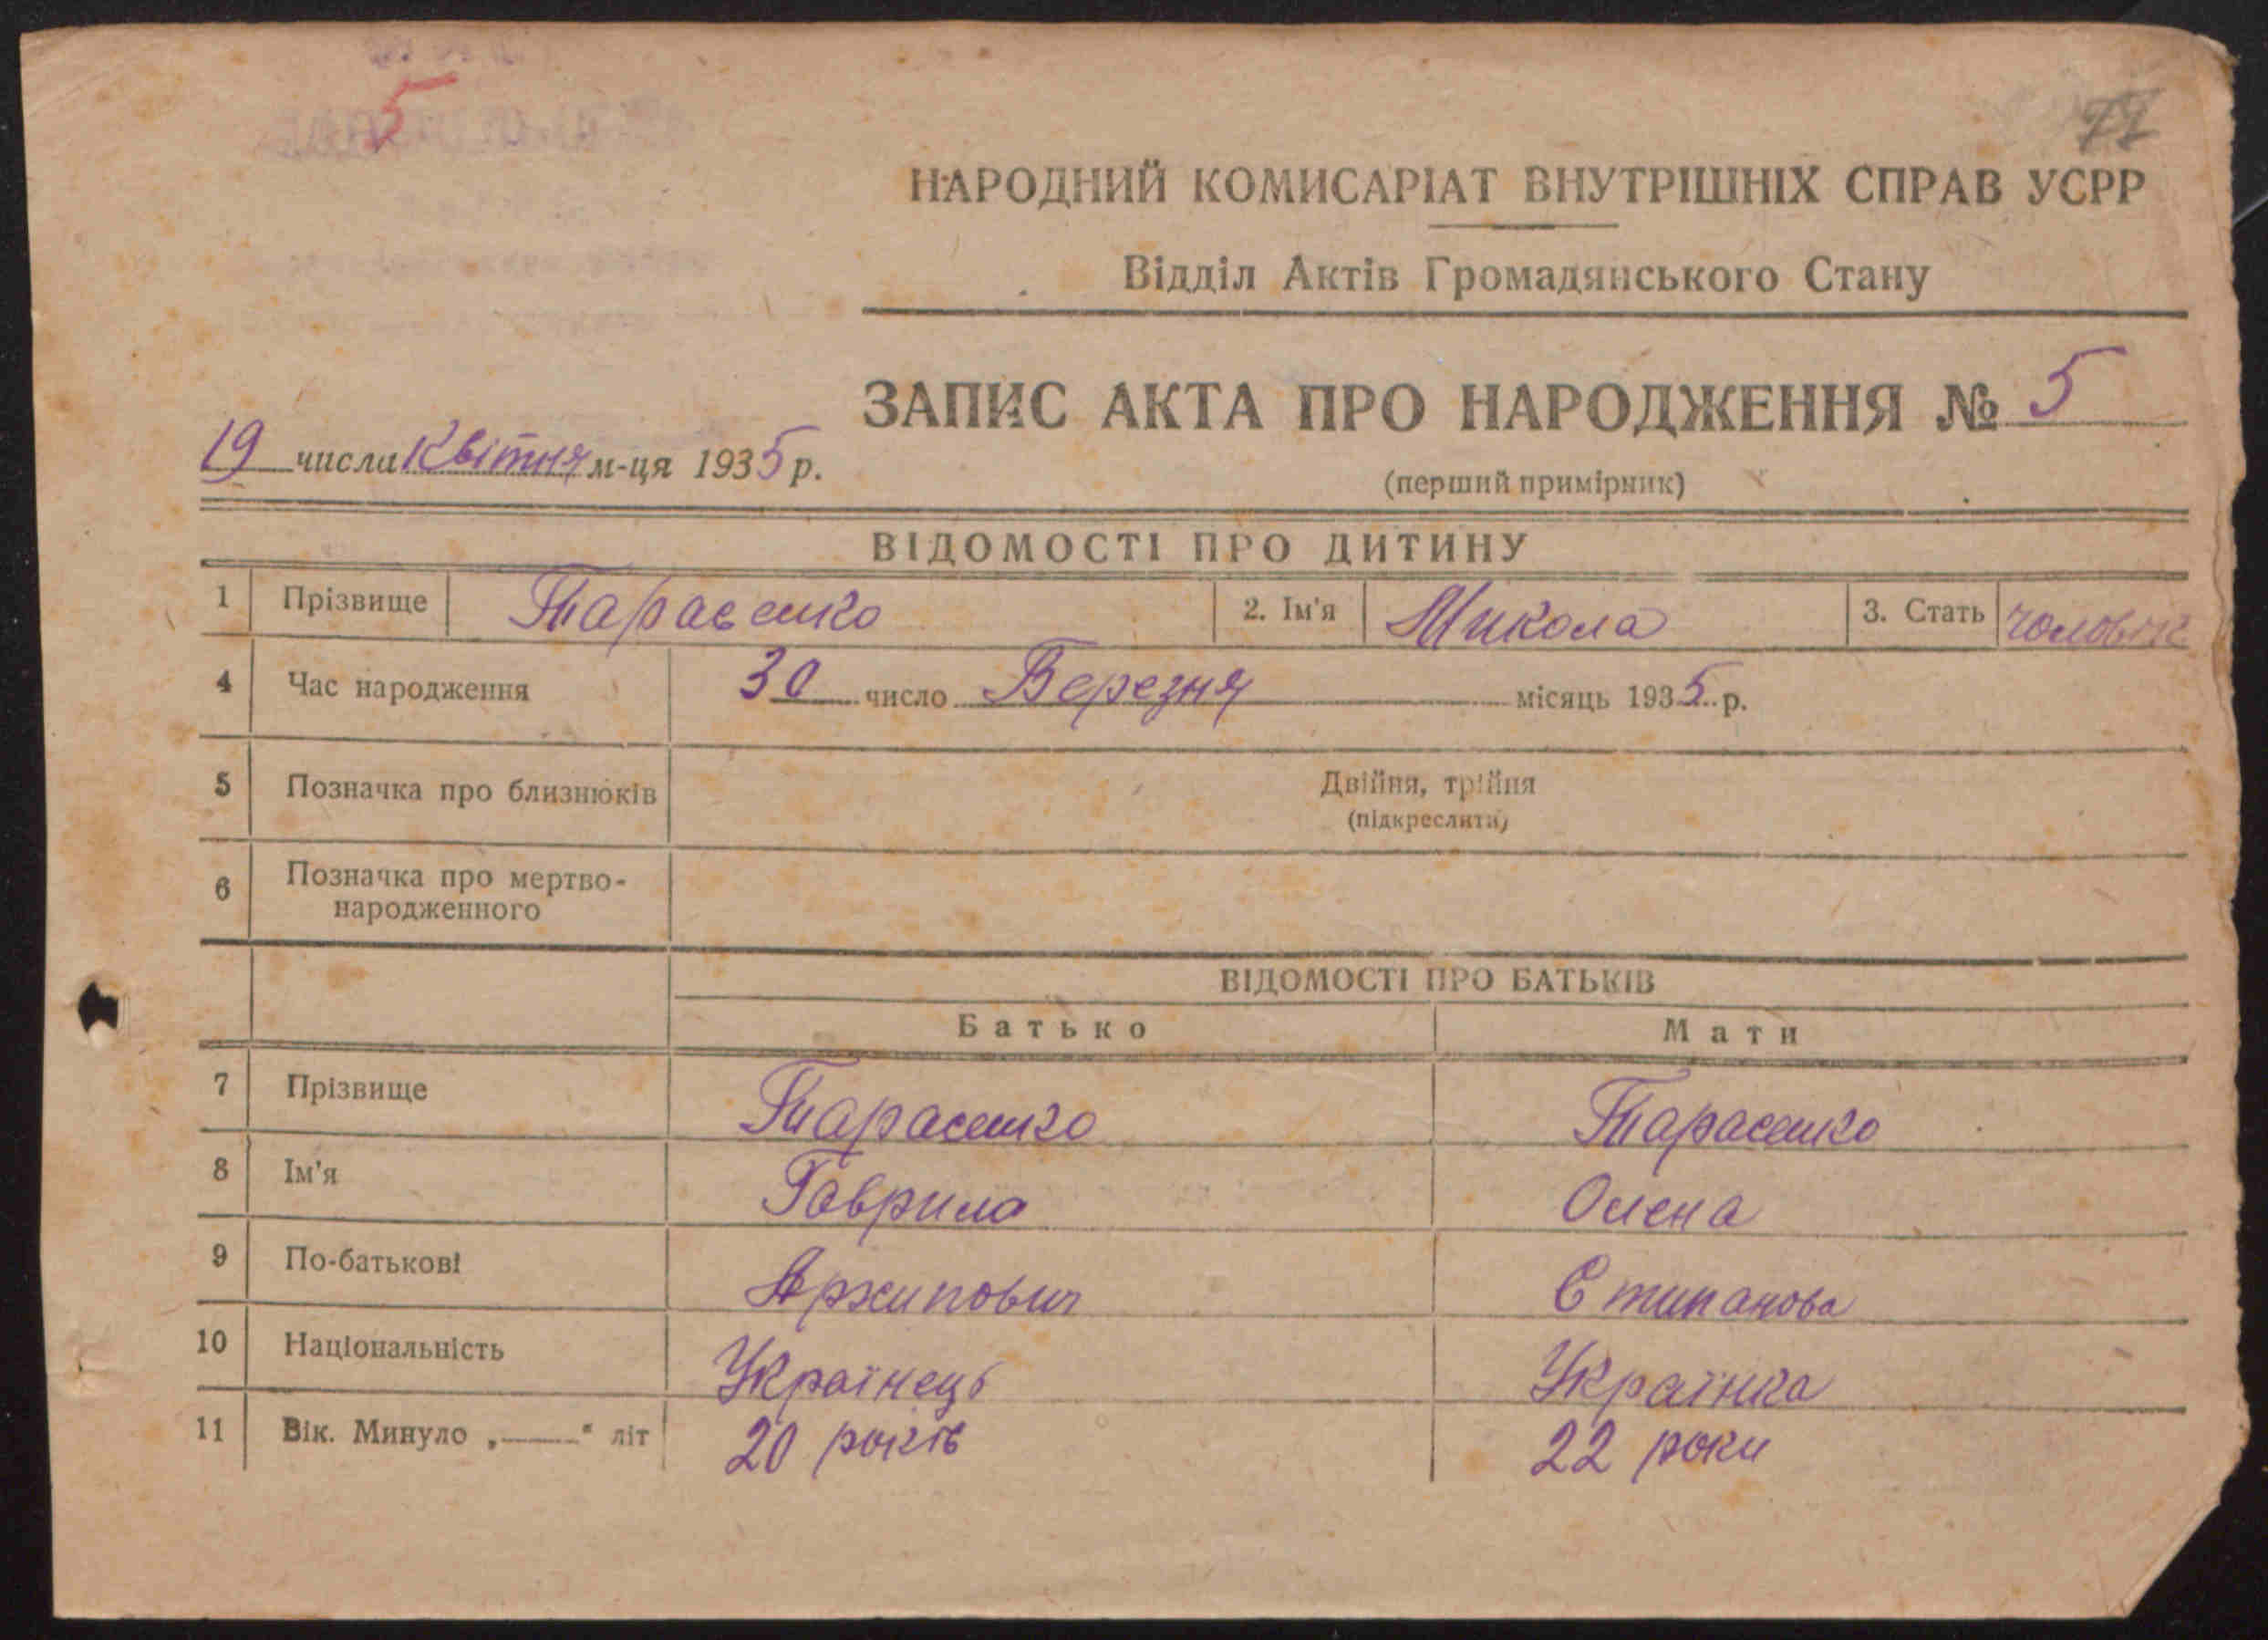 5
77
НАРОДНИЙ КОМИСАРІАТ ВНУТРІШНІХ СПРАВ УСРР
Відділ Актів Громадянського Стану
ЗАПИС АКТА ПРО НАРОДЖЕННЯ № 5
19 числа Квітня м-ця 1935 р.
(перший примірник)
ВІДОМОСТІ ПРО ДИТИНУ
1 Прізвище Тарасенко 2. Ім'я Микола 3. Стать чоловік
4 Час народження 30 число Березня місяць 1935 р.
5 Позначка про близнюків Двійня, трійня
(підкреслити)
6 Позначка про мертво-
народженного
ВІДОМОСТІ ПРО БАТЬКІВ
Батько Мати
7 Прізвище Тарасенко Тарасенко
8 Ім'я Гаврило Олена
9 По-батькові Архипович Стипанова
10 Національність Українець Українка
11 Вік. Минуло „——" літ 20 років 22 роки